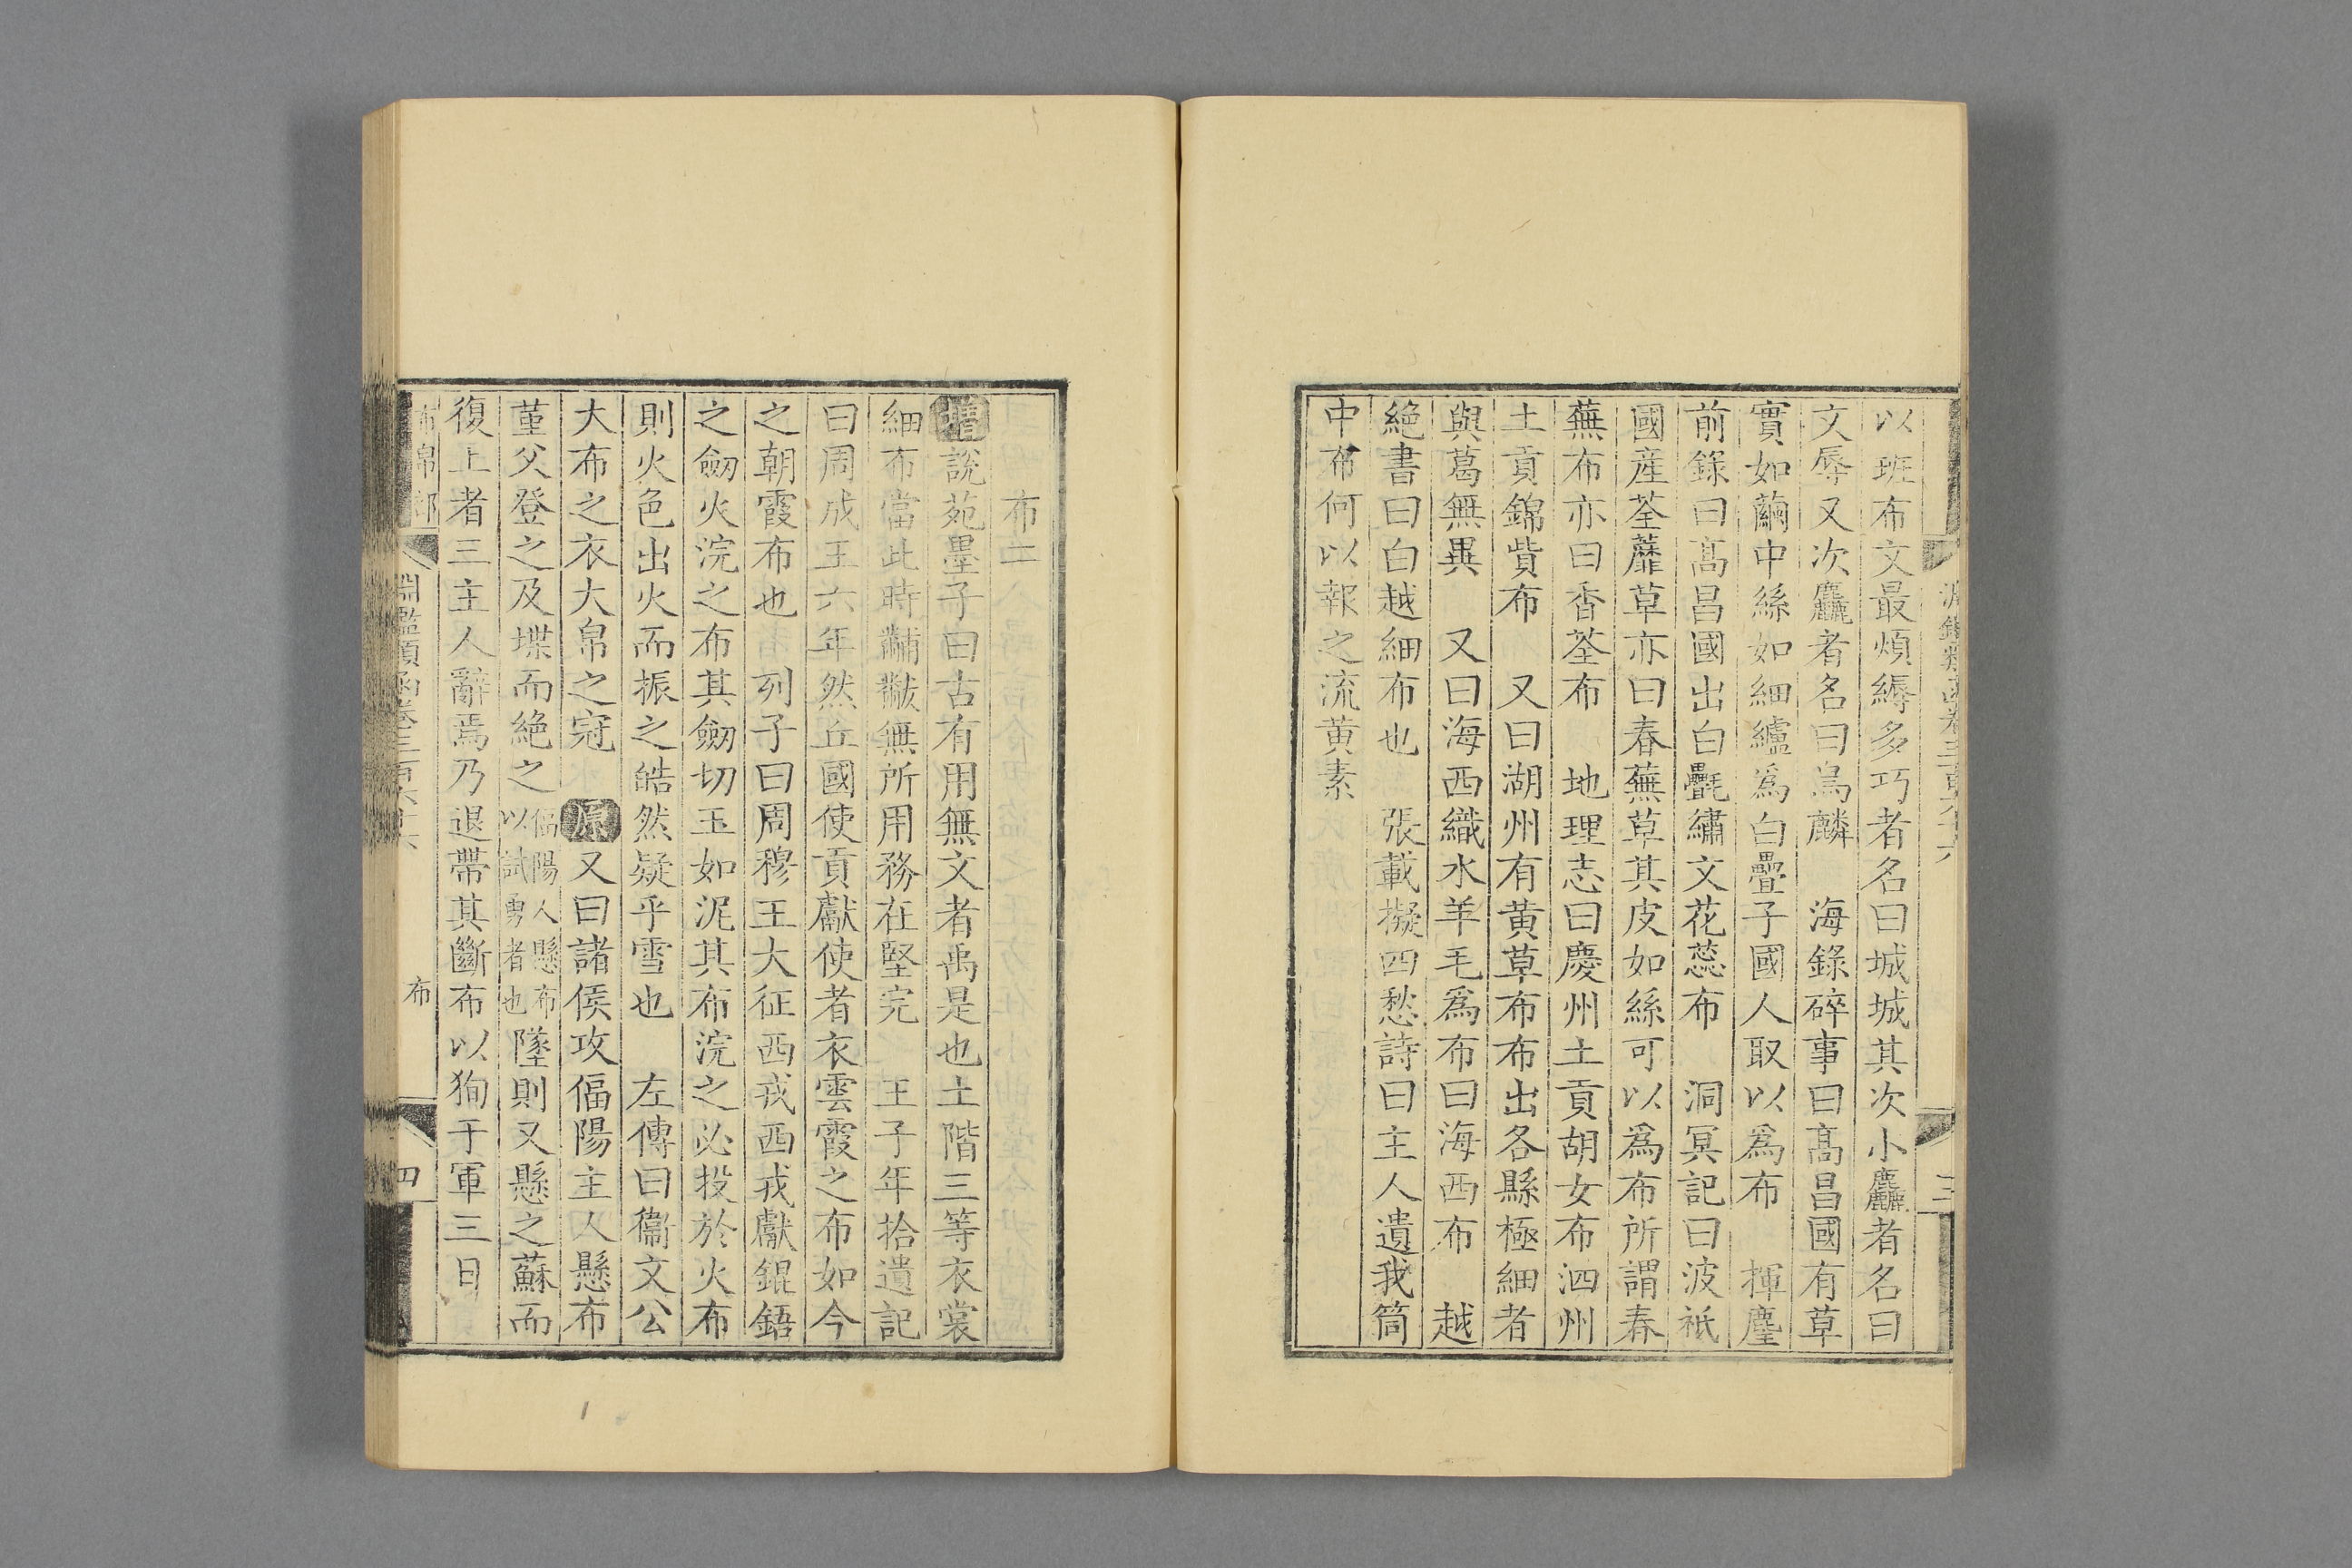 以班布文最煩縟多巧者名曰城城其次小麤者名曰
文辱又次麤者名曰烏麟　海錄碎事曰髙昌國有草
實如繭中絲如細纑爲白疊子國人取以爲布　揮麈
前錄曰髙昌國出白氎繡文花蕊布　洞冥記曰波祇
國産荃蘼草亦曰春蕪草其皮如絲可以爲布所謂春
蕪布亦曰香荃布　地理志曰慶州土貢胡女布泗州
土貢錦貲布　又曰湖州有黄草布布出各縣極細者
與葛無異　又曰海西織水羊毛爲布曰海西布　越
絶書曰白越細布也　張載擬四愁詩曰主人遺我筒
中布何以報之流黄素
布二
增說苑墨子曰古有用無文者禹是也土階三等衣裳
細布當此時黼黻無所用務在堅完　王子年拾遺記
曰周成王六年然丘國使貢獻使者衣雲霞之布如今
之朝霞布也　列子曰周穆王大征西戎西戎獻錕鋙
之劒火浣之布其劒切玉如泥其布浣之必投於火布
則火色出火而振之皓然疑乎雪也　左傳曰衞文公
大布之衣大帛之冠　原又曰諸侯攻偪陽主人懸布
菫父登之及堞而絶之偪陽人懸布以試勇者也墜則又懸之蘇而
復上者三主人辭焉乃退帶其斷布以狥于軍三日
布帛部
淵鑑類函卷三百六十六
布
四